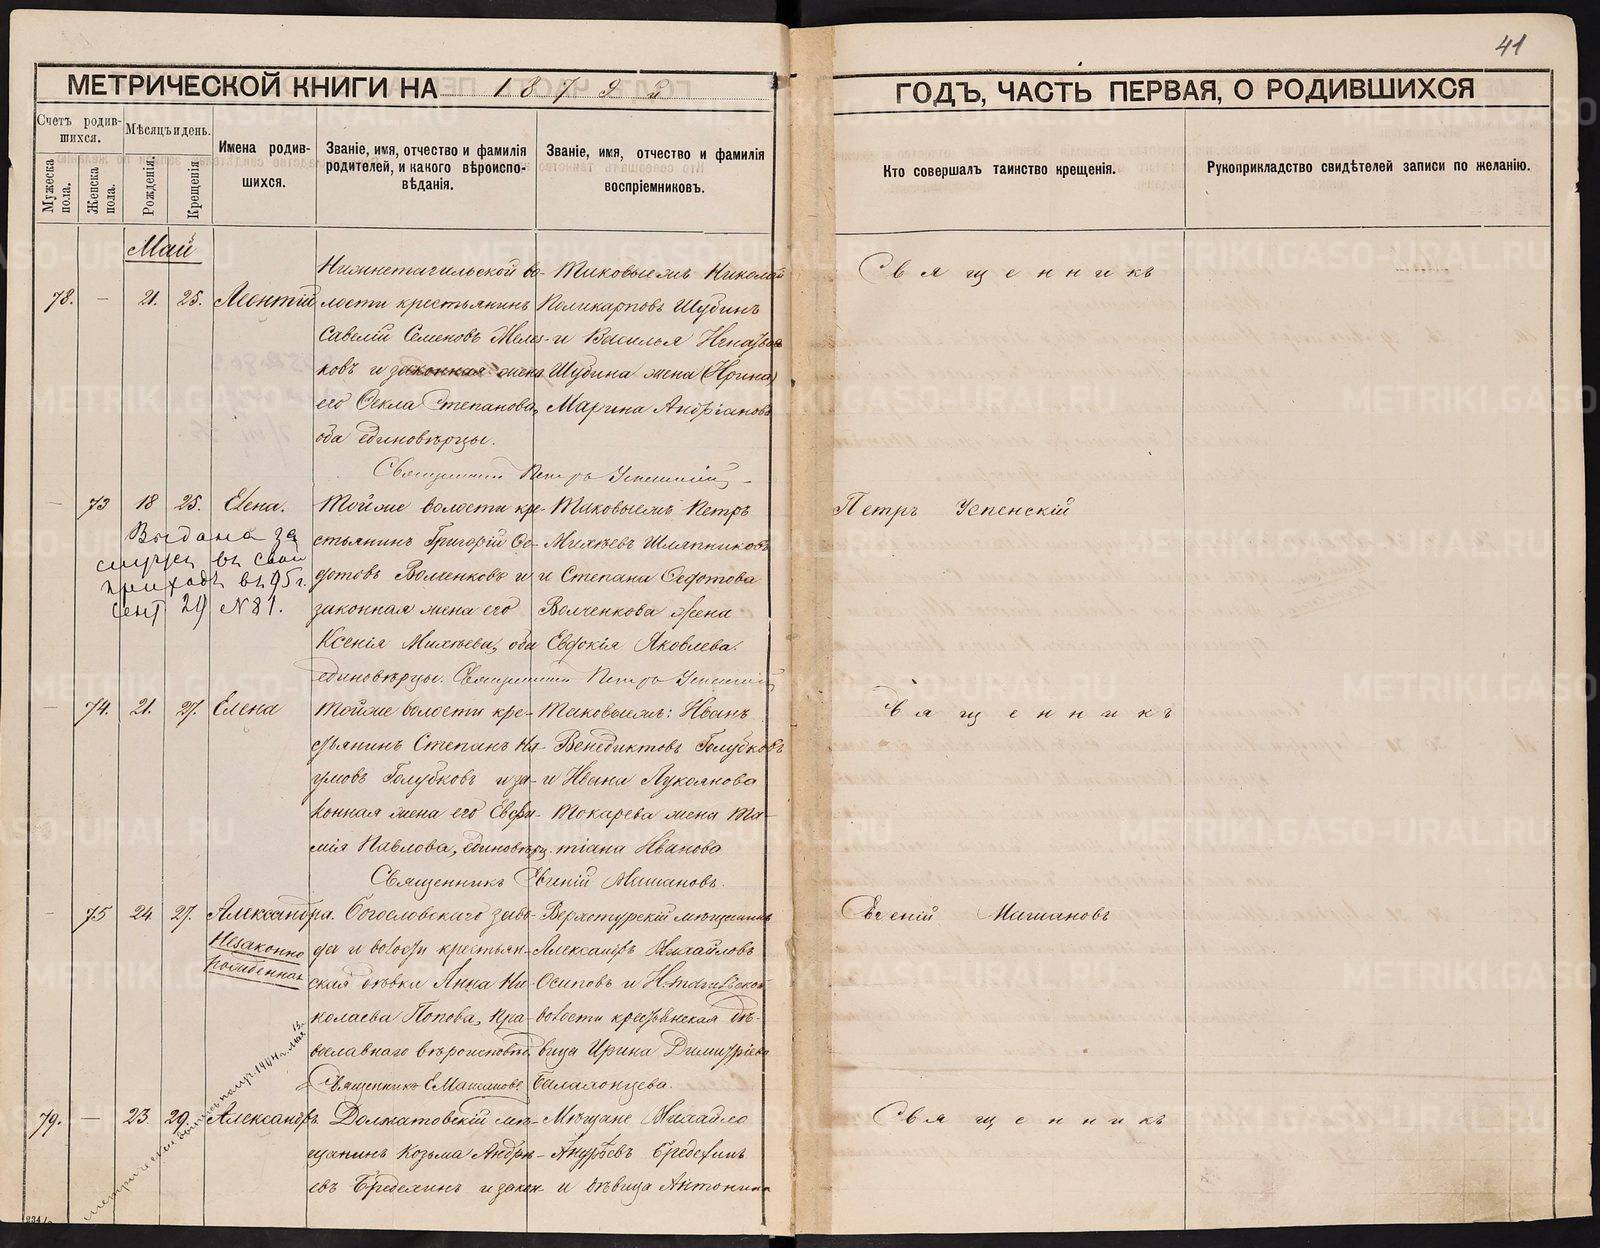 41
МЕТРИЧЕСКОЙ КНИГИ НА 187
ГОДЪ, ЧАСТЬ ПЕРВАЯ, О РОДИВШИХСЯ
Счетъ родив-
шихся.
Мѣсяцъ и день.
Мужеска пола.
Женска пола.
Рожденія.
Крещенія.
Имена родив-
шихся.
Званіе, имя, отчество и фамилія
родителей, и какого вѣроиспо-
вѣданія.
Званіе, имя, отчество и фамилія
воспріемниковъ.
Кто совершалъ таинство крещенія.
Рукоприкладство свидѣтелей записи по желанію.
Май
78. – 21. 25. Леонтій
Нижнетагильской во-
лости крестьянинъ
Савелій Семеновъ
ковъ и законная жена
его Ѳекла Степанова,
оба единовѣрцы.
Таковыежъ Николай
Поликарповъ Шубинъ
и Василья
Шубина жена (Ирина)
Марина Андріанова
Священникъ Петръ Успенскій
Священникъ
– 73 18 25. Елена.
Выдана за
въ свой
приходъ въ 95 г.
сент 29 №81.
Тойже волости кре-
стьянинъ Григорій Ѳе-
дотовъ Волченковъ и
законная жена его
Ксенія Михѣева, оба
единовѣрцы. Священникъ Петръ Успенскій
Таковыежъ Петръ
Михѣевъ Шляпниковъ
и Степана Ѳедотова
Волченкова жена
Евдокія Яковлева.
Петръ Успенскій
– 74. 21. 27. Елена
Тойже волости кре-
стьянинъ Степанъ На-
умовъ Голубковъ и за-
конная жена его Евфи-
мія Павлова, единовѣрц.
Таковыежъ: Иванъ
Венедиктовъ Голубковъ
и Ивана Лукоянова
Токарева жена Та-
тіана Иванова
Священникъ Евгеній Машановъ.
Священникъ
– 75 24. 27. Александра.
Незаконно
рожденная
Богословскаго заво-
да и волости крестьян-
ская дѣвка Анна Ни-
колаева Попова, пра-
вославнаго вѣроисповѣд.
Священникъ Е Машановъ
Верхотурскій мѣщанинъ
Александръ Михайловъ
Осиповъ и Н.тагильской
волости крестьянская дѣ-
вица Ирина Димитріева
Балаконцева.
Евгеній Машановъ
79. – 23. 29. Александръ.
Долматовскій мѣ-
щанинъ Козьма Андре-
евъ Бределинъ и закон
Мѣщане Михайло
Андреевъ Бределинъ
и дѣвица Антонина
Священникъ
METRIKI.GASO-URAL.RU